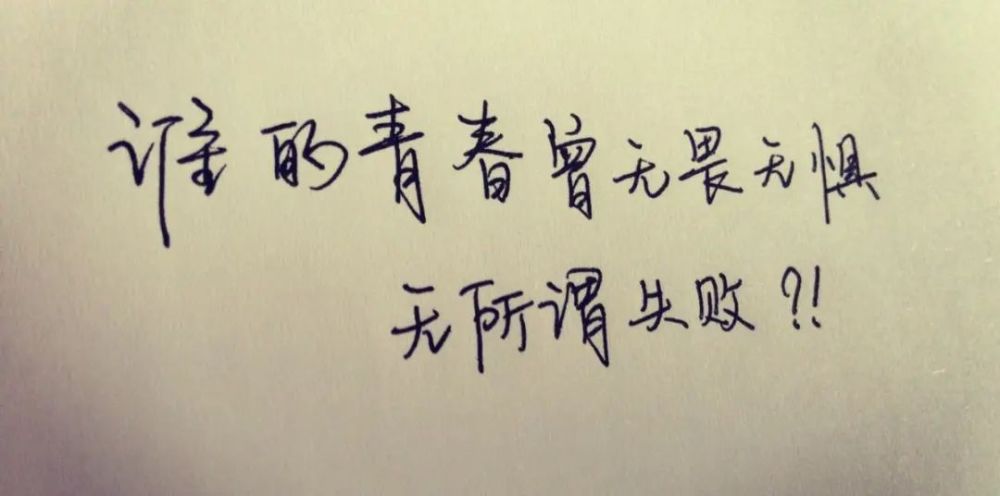 谁的青春曾无畏无惧
无所谓失败?!